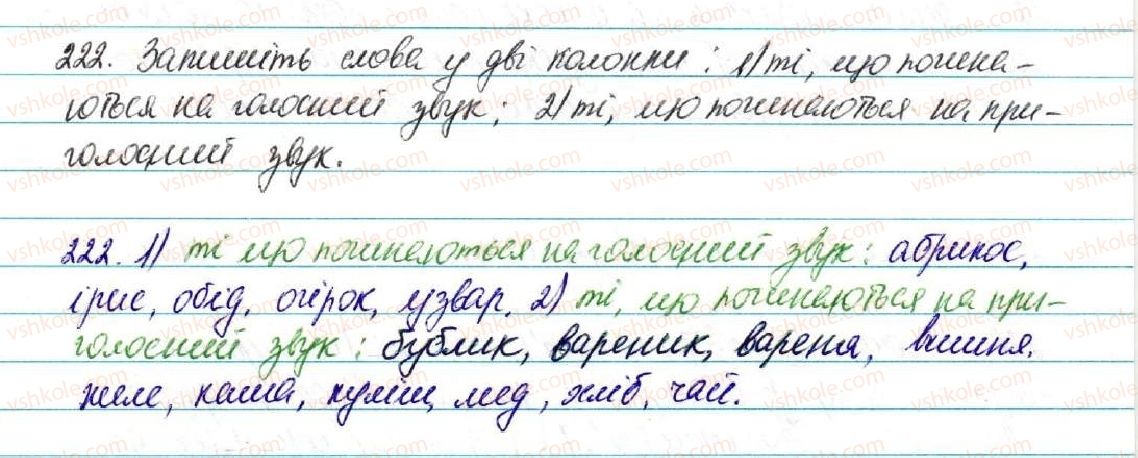 222. Запишіть слова у дві колонки: 1) ті, що почина-
ються на голосний звук; 2) ті, що починаються на при-
голосний звук.
222. 1) ті що починаються на голосний звук: абрикос,
ірис, обід, огірок, узвар. 2) ті, що починаються на при-
голосний звук: бублик, вареник, варення, вишня,
желе, каша, куліш, мед, хліб, чай.